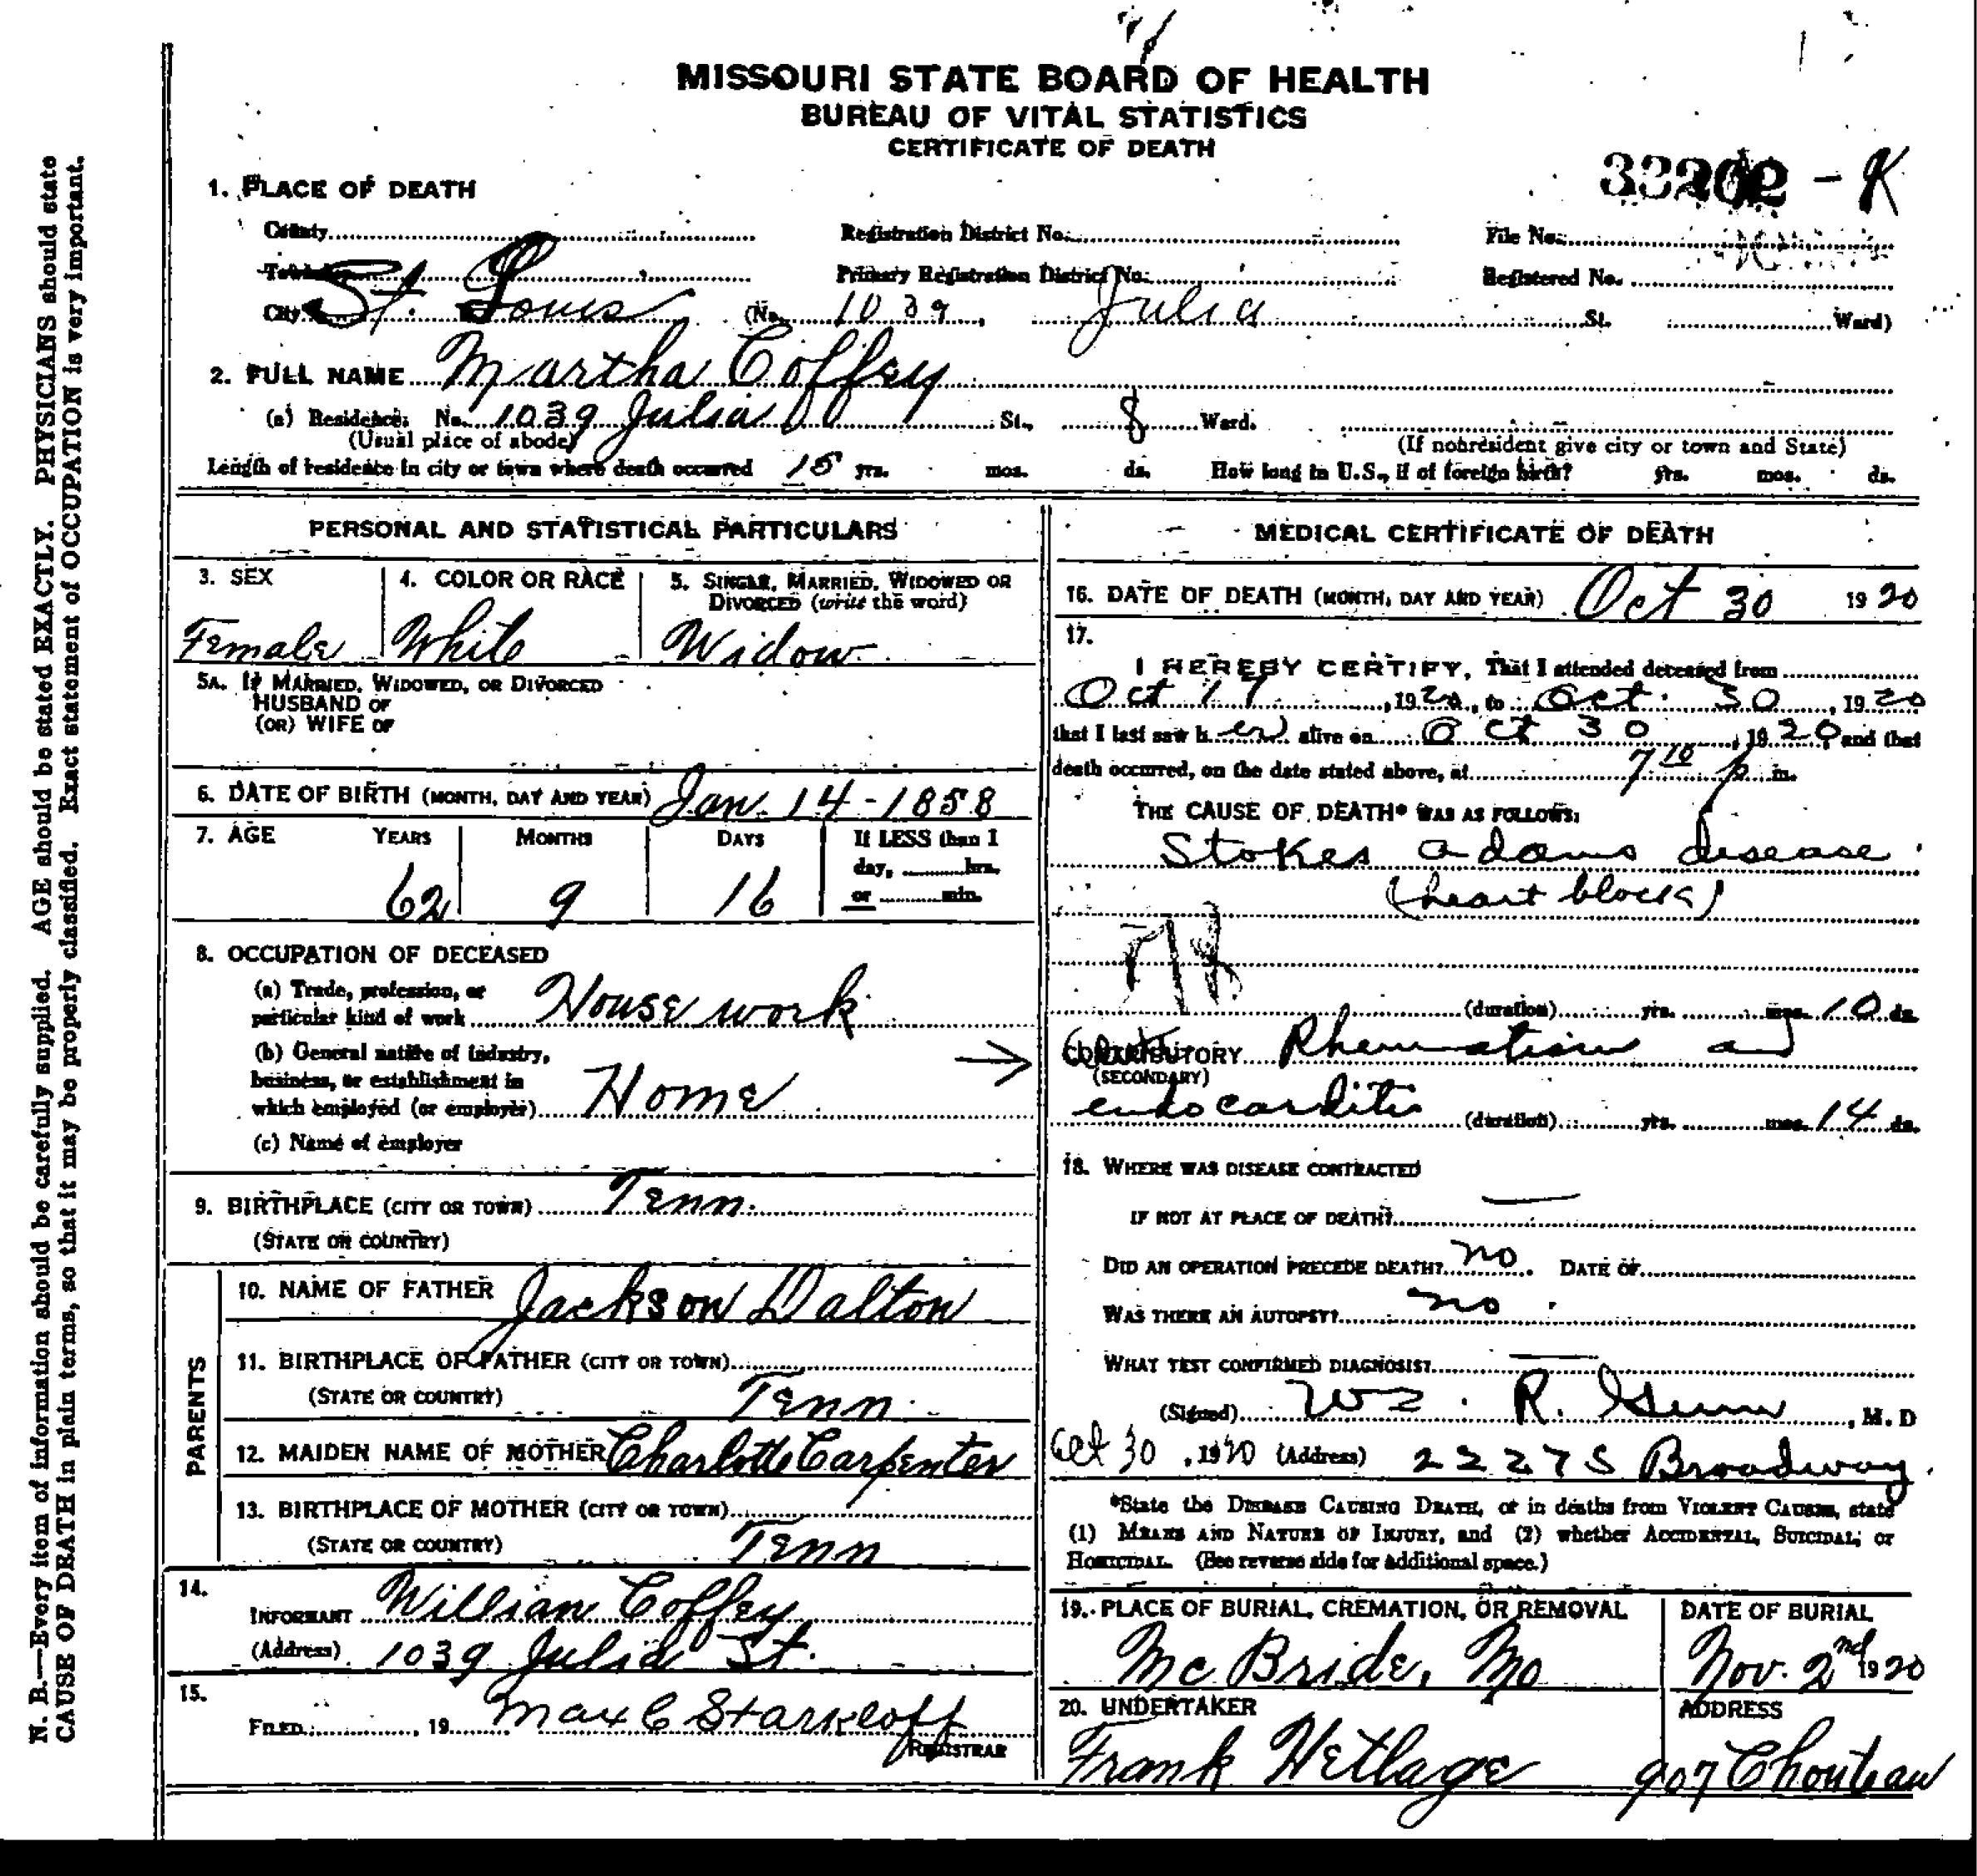 MISSOURI STATE BOARD OF HEALTH
BUREAU OF VITAL STATISTICS
CERTIFICATE OF DEATH
1. PLACE OF DEATH
County
Registration District No.
File No.
Primary Registration District No.
Registered No.
City St. Louis (No. 1039, Julia St. Ward)
2. FULL NAME Martha Coffey
(a) Residence. No. 1039 Julia St., 8 Ward.
(Usual place of abode) (If nonresident give city or town and State)
Length of residence in city or town where death occurred 15 yrs. mos. ds. How long in U.S., if of foreign birth? yrs. mos. ds.
PERSONAL AND STATISTICAL PARTICULARS
3. SEX 4. COLOR OR RACE 5. SINGLE, MARRIED, WIDOWED OR
DIVORCED (write the word)
Female White Widow
5A. IF MARRIED, WIDOWED, OR DIVORCED
HUSBAND OF
(OR) WIFE OF
6. DATE OF BIRTH (MONTH, DAY AND YEAR) Jan. 14-1858
7. AGE YEARS MONTHS DAYS If LESS than 1
day, hrs.
or min.
62 9 16
8. OCCUPATION OF DECEASED
(a) Trade, profession, or
particular kind of work House work
(b) General nature of industry,
business, or establishment in
which employed (or employer) Home
(c) Name of employer
9. BIRTHPLACE (CITY OR TOWN) Tenn.
(STATE OR COUNTRY)
PARENTS
10. NAME OF FATHER Jackson Dalton
11. BIRTHPLACE OF FATHER (CITY OR TOWN)
(STATE OR COUNTRY) Tenn.
12. MAIDEN NAME OF MOTHER Charlotte Carpenter
13. BIRTHPLACE OF MOTHER (CITY OR TOWN)
(STATE OR COUNTRY) Tenn
14.
INFORMANT Willian Coffey
(Address) 1039 Julia St.
15.
FILED , 19 Max C Starkloff
REGISTRAR
MEDICAL CERTIFICATE OF DEATH
16. DATE OF DEATH (MONTH, DAY AND YEAR) Oct 30 1920
17.
I HEREBY CERTIFY, That I attended deceased from
Oct 17, 1920, to Oct. 30, 1920
that I last saw her alive on Oct 30, 1920 and that
death occurred, on the date stated above, at 7 10 p m.
THE CAUSE OF DEATH* WAS AS FOLLOWS:
Stokes adams disease
(heart block)
(duration) yrs. mos. 10 ds.
CONTRIBUTORY Rheumatism and
(SECONDARY)
endocarditis (duration) yrs. mos. 14 ds.
18. WHERE WAS DISEASE CONTRACTED
IF NOT AT PLACE OF DEATH?
DID AN OPERATION PRECEDE DEATH? no. DATE OF
WAS THERE AN AUTOPSY? no.
WHAT TEST CONFIRMED DIAGNOSIS?
(Signed) R. Gunn, M. D
Oct 30, 1920 (Address) 2227 S Broadway.
*State the DISEASE CAUSING DEATH, or in deaths from VIOLENT CAUSES, state
(1) MEANS AND NATURE OF INJURY, and (2) whether ACCIDENTAL, SUICIDAL, or
HOMICIDAL. (See reverse side for additional space.)
19. PLACE OF BURIAL, CREMATION, OR REMOVAL DATE OF BURIAL
Mc Bride, Mo Nov. 2nd 1920
20. UNDERTAKER ADDRESS
Frank Hetlage 907 Chouteau
N. B.—Every item of information should be carefully supplied. AGE should be stated EXACTLY. PHYSICIANS should state
CAUSE OF DEATH in plain terms, so that it may be properly classified. Exact statement of OCCUPATION is very important.